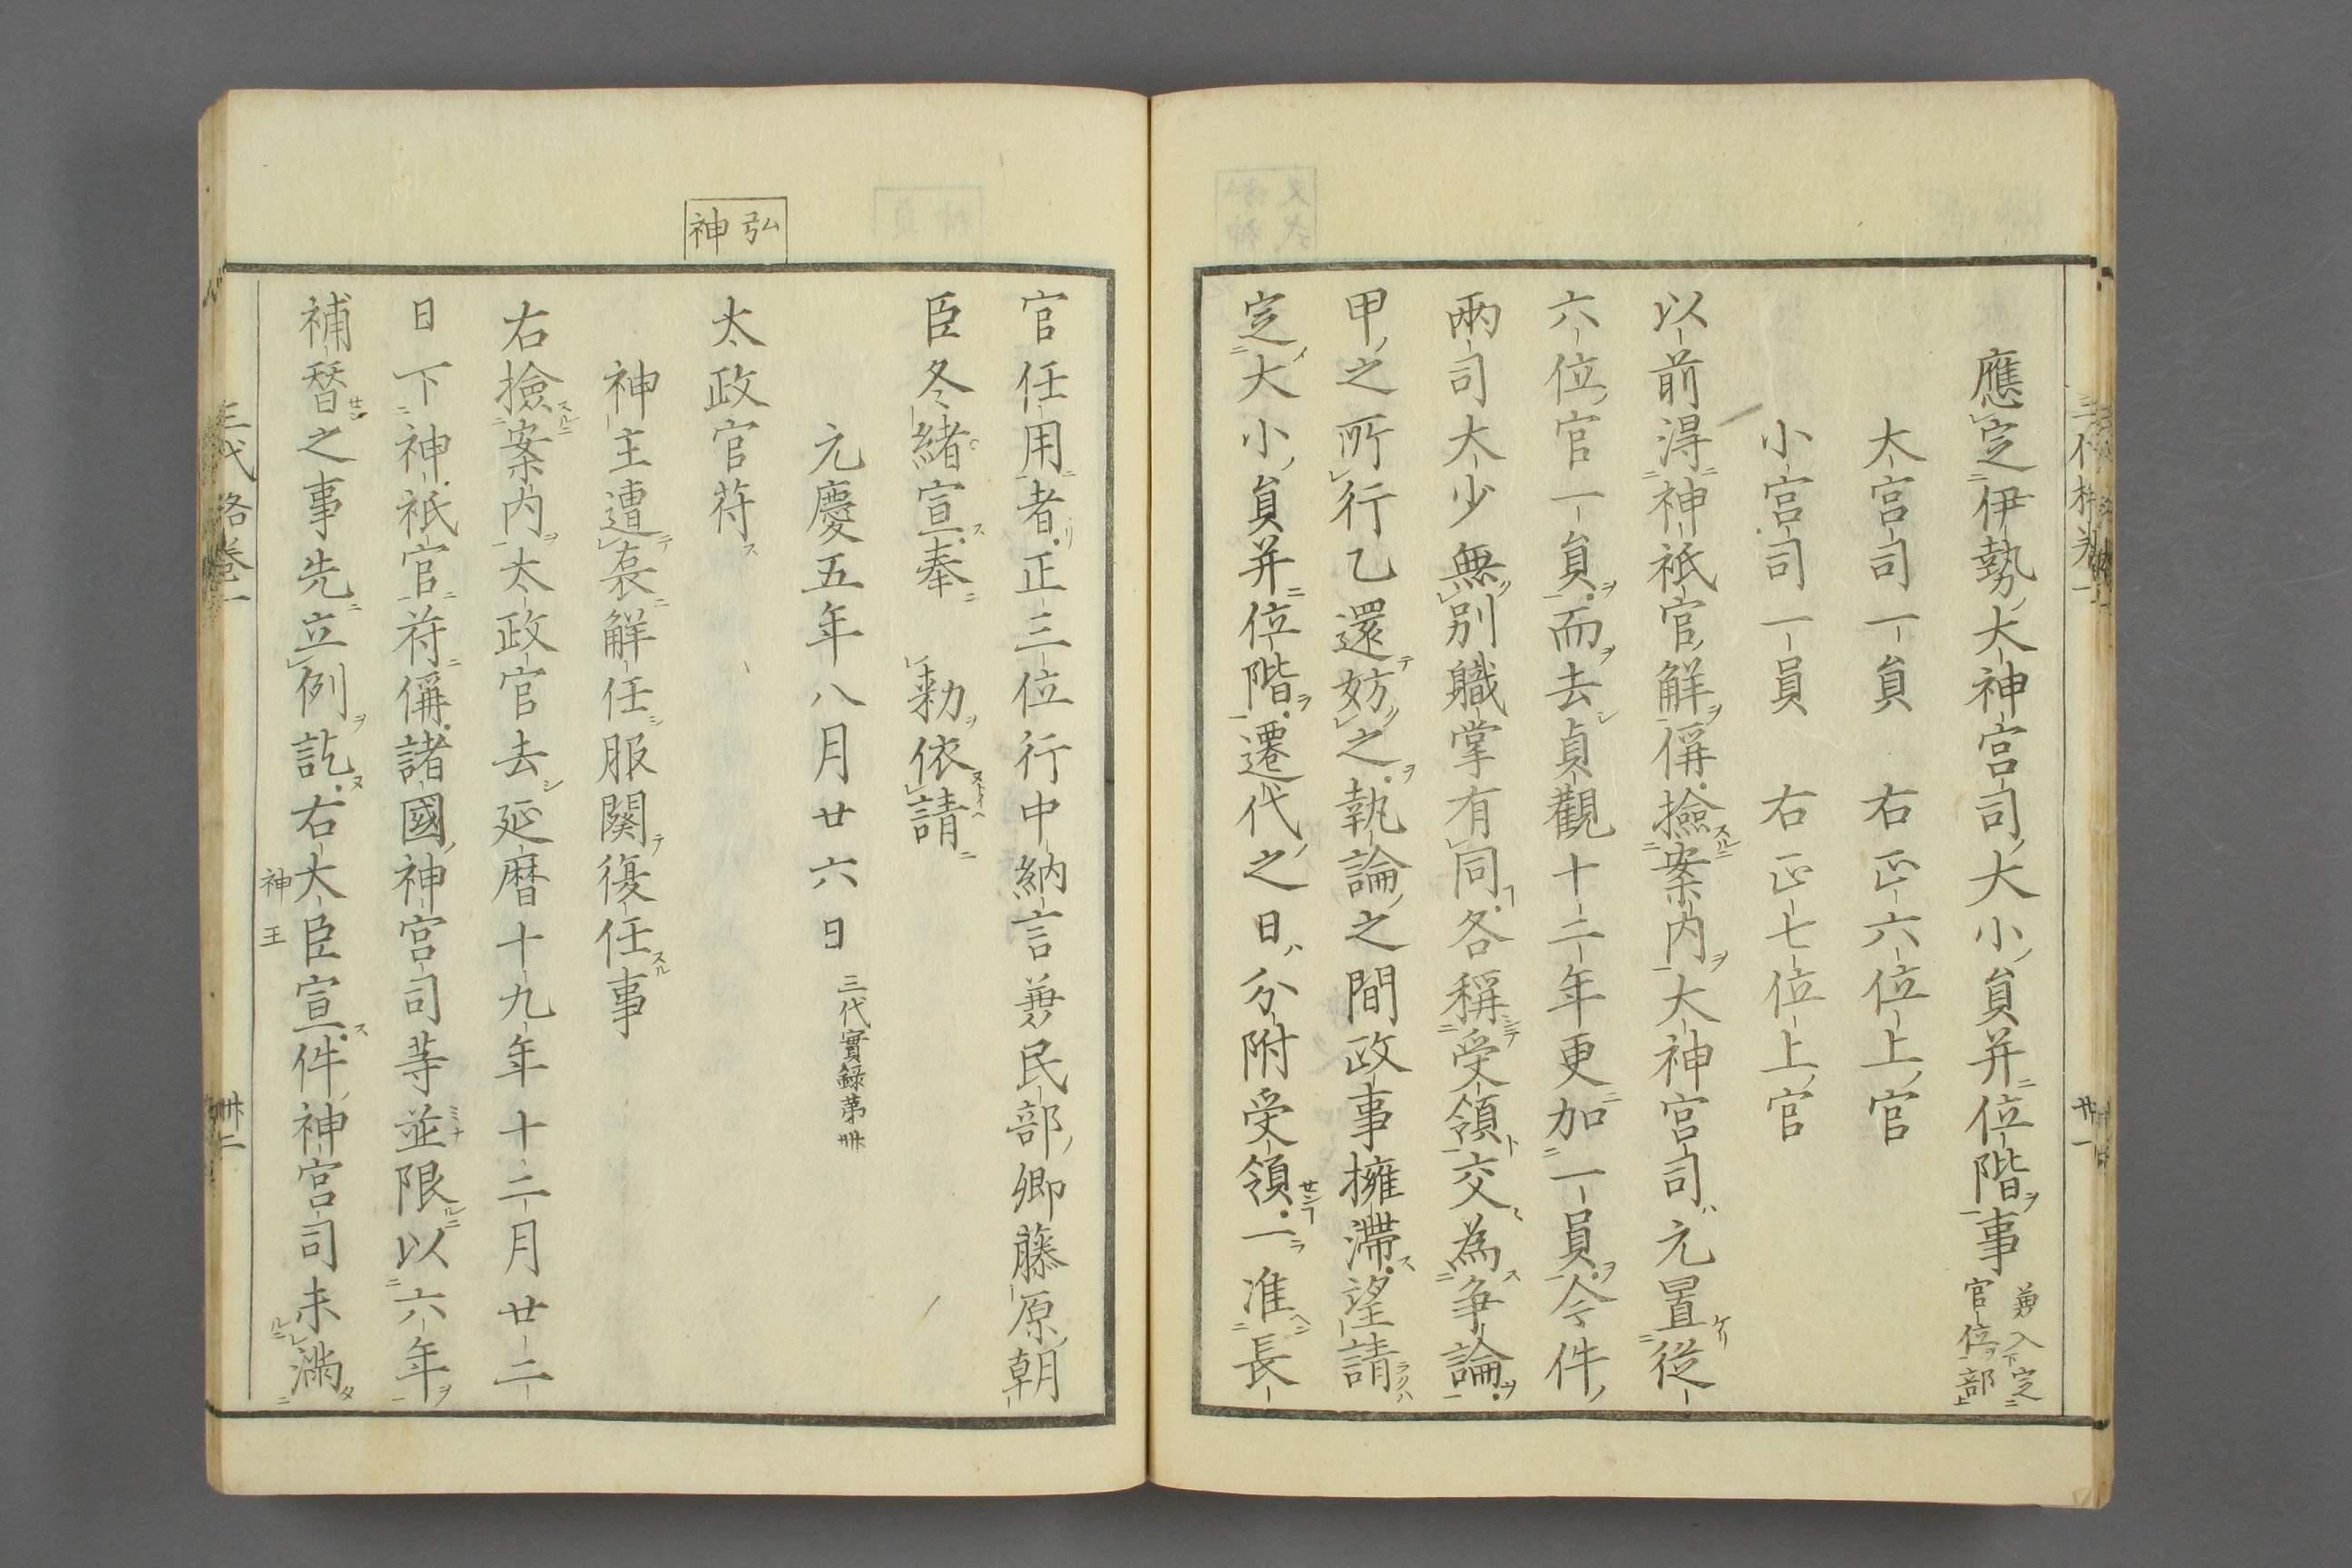 應定伊勢大神宮司大小員并位階事
兼入下定
官位部
大宮司一員　右正六位上官
小宮司一員　右正七位上官
以前得神祇官解偁撿案内大神宮司元置從
六位官一員而去貞觀十二年更加一員今件
兩司大少無別職掌有同各稱受領交為爭論
甲之所行乙還妨之執論之間政事擁滯望請
定大小員并位階遷代之日分附受領一准長
官任用者正三位行中納言兼民部卿藤原朝
臣冬緒宣奉　勅依請
元慶五年八月廿六日
三代實録苐卌
弘神
太政官苻
神主遭喪解任服闋復任事
右撿案内太政官去延曆十九年十二月廿二
日下神祇官苻偁諸國神宮司等並限以六年
補替之事先立例訖右大臣宣件神宮司未滿
神王
三代格卷一
卅二